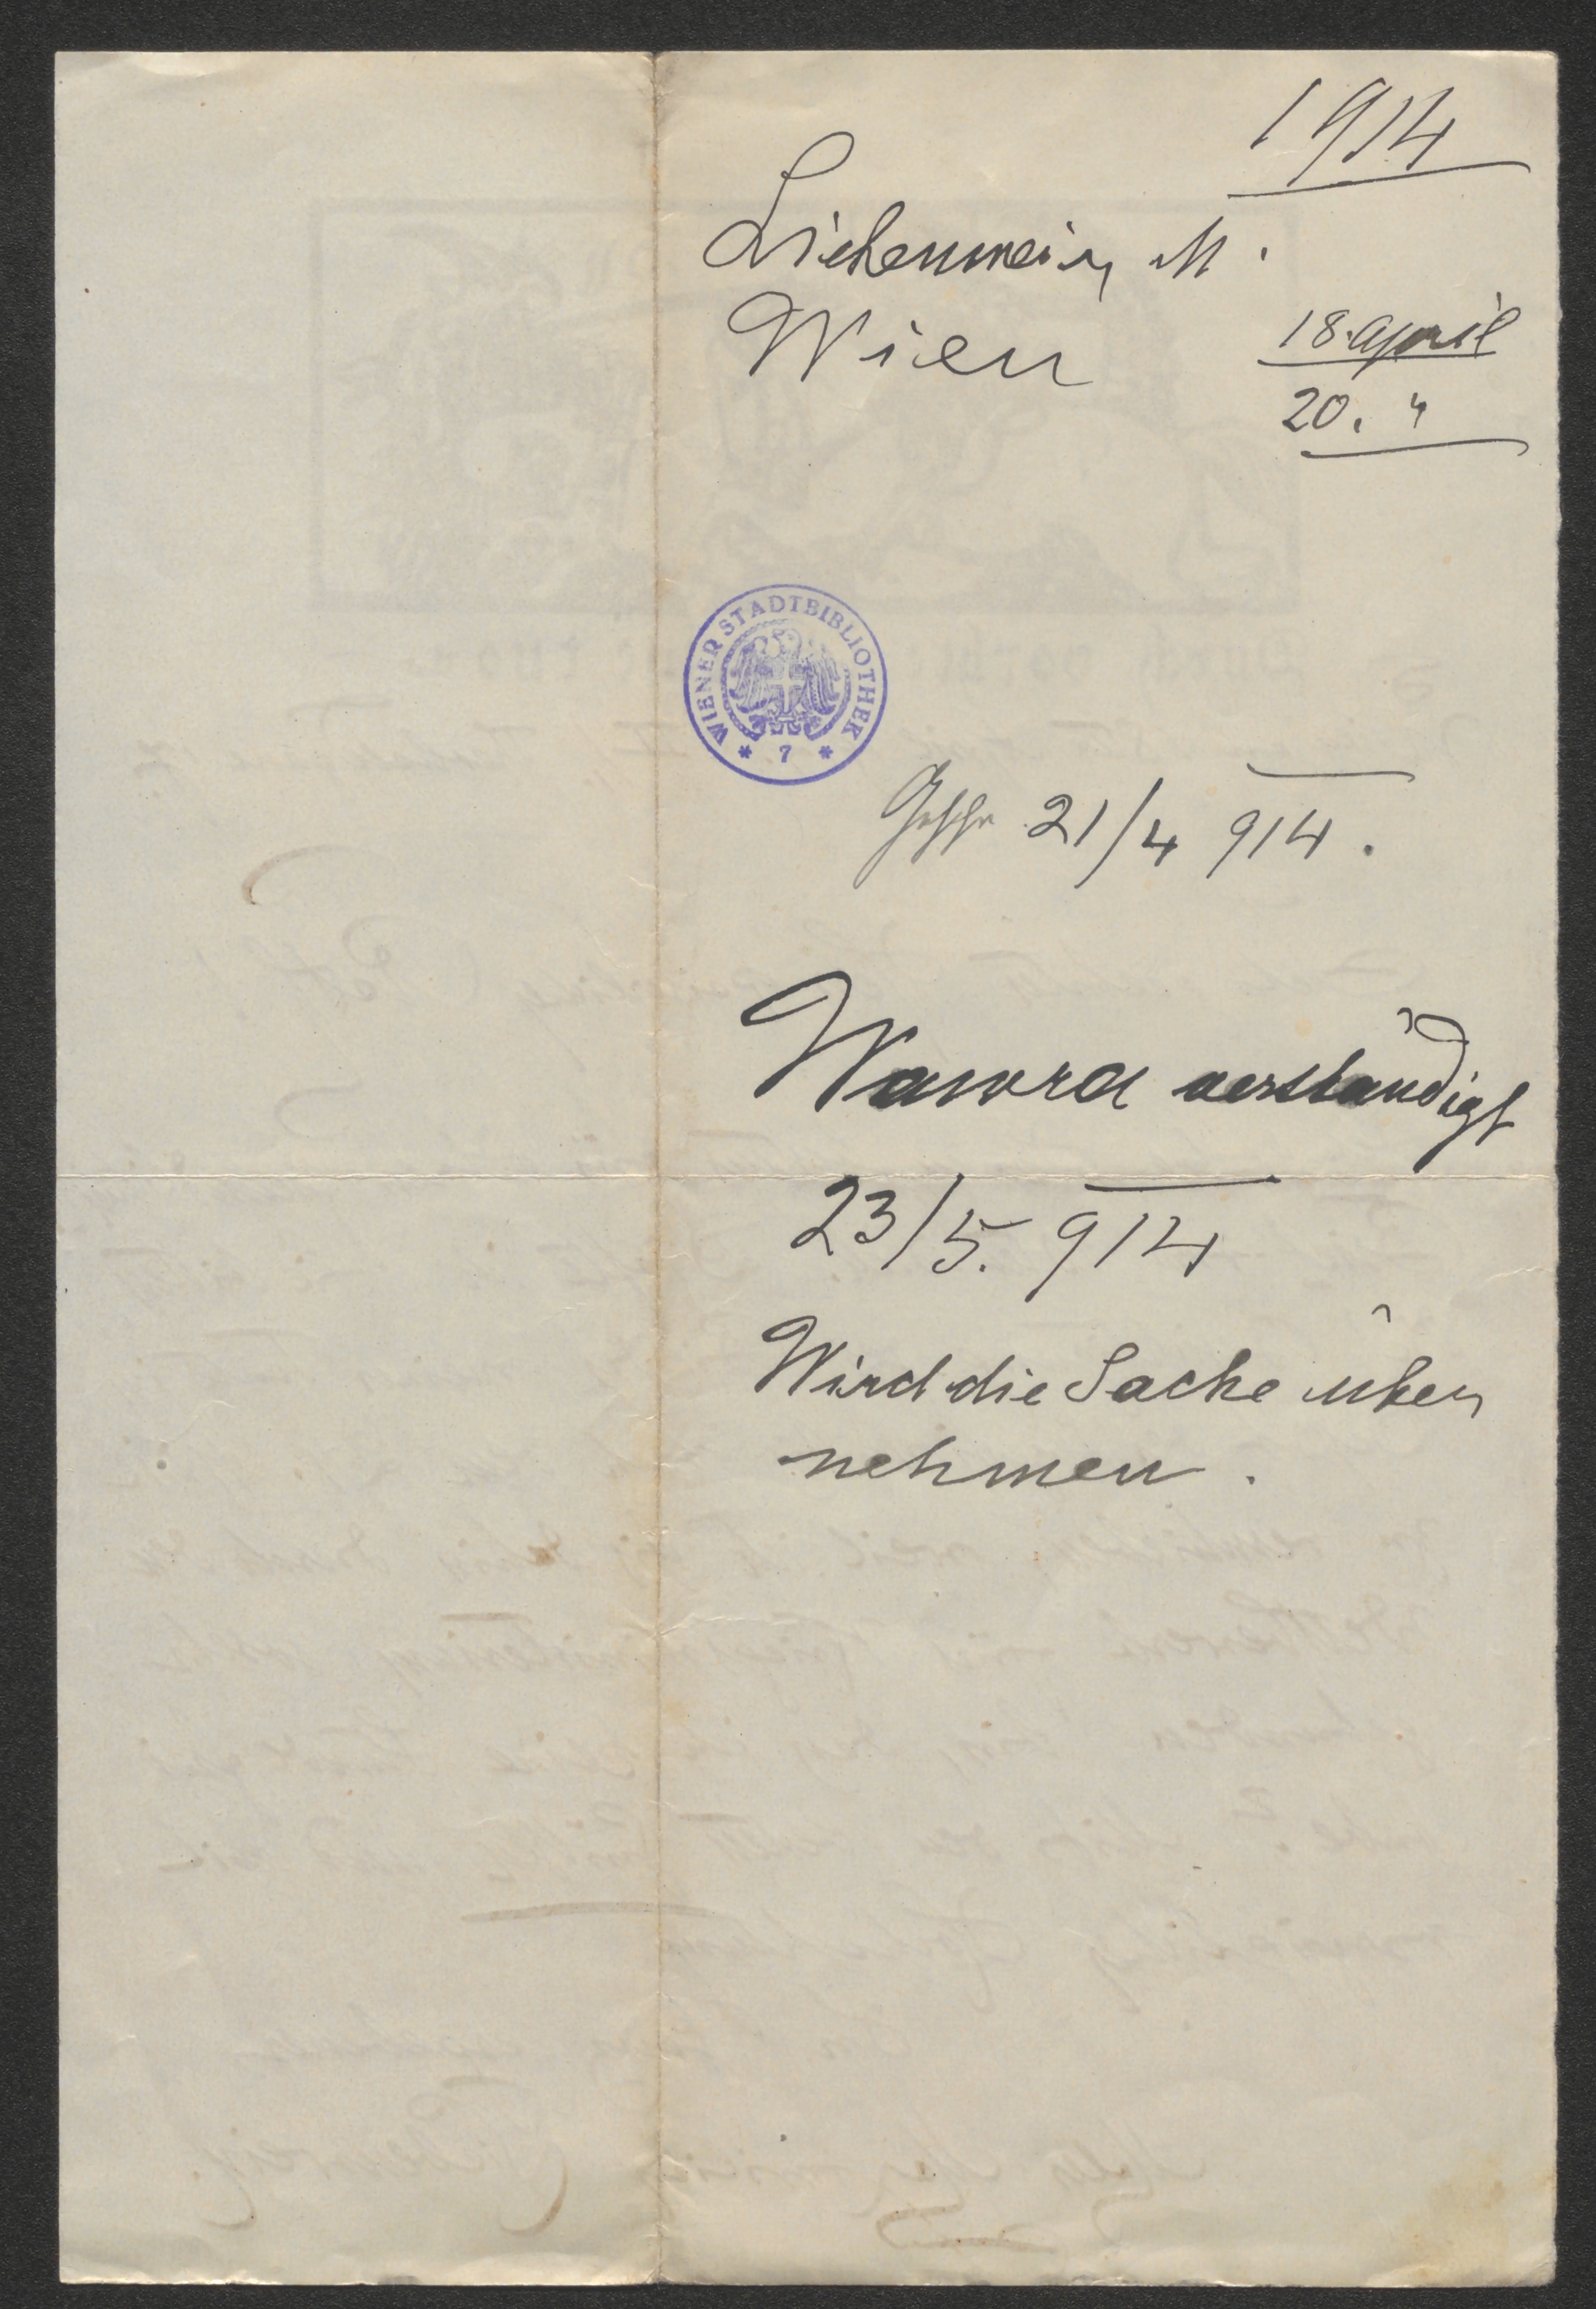 1914
Liebenwein, M.
Wien
18. April
20. "
WIENER STADTBIBLIOTHEK
* 7 *
21/4 914.
Wawra verständigt
23/5. 914
Wird die Sache über
nehmen.